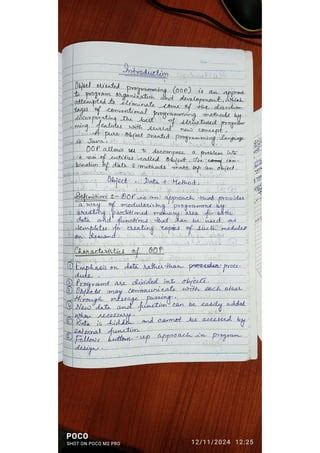 Introduction
Object oriented programming (OOP) is an approa
to program organization and development, which
attempted to eliminate some of the disadvan
tages of conventional programming methods by
incorporating the best of structured progra
mming features with several new concept.
A pure Object oriented programming language
is Java.
OOP allows us to decompose a problem into
a no. of entities called Object. The com
bination of data & methods make up an object.
Object = Data + Method.
Definition :- OOP is an approach that provides
a way of modularizing programmed by
creating partitioned memory area for both
data and functions that can be used as
templates for creating copies of such modules
on demand.
Characteristics of OOP
① Emphasis on data rather than proce-
dure.
② Programs are divided into objects.
③ Objects may communicate with each other
through message passing.
④ New data and function can be easily added
when necessary.
⑤ Data is hidden and cannot be accessed by
external function.
⑥ Follows bottom-up approach in program
design.
POCO
SHOT ON POCO M2 PRO
12/11/2024 12:25